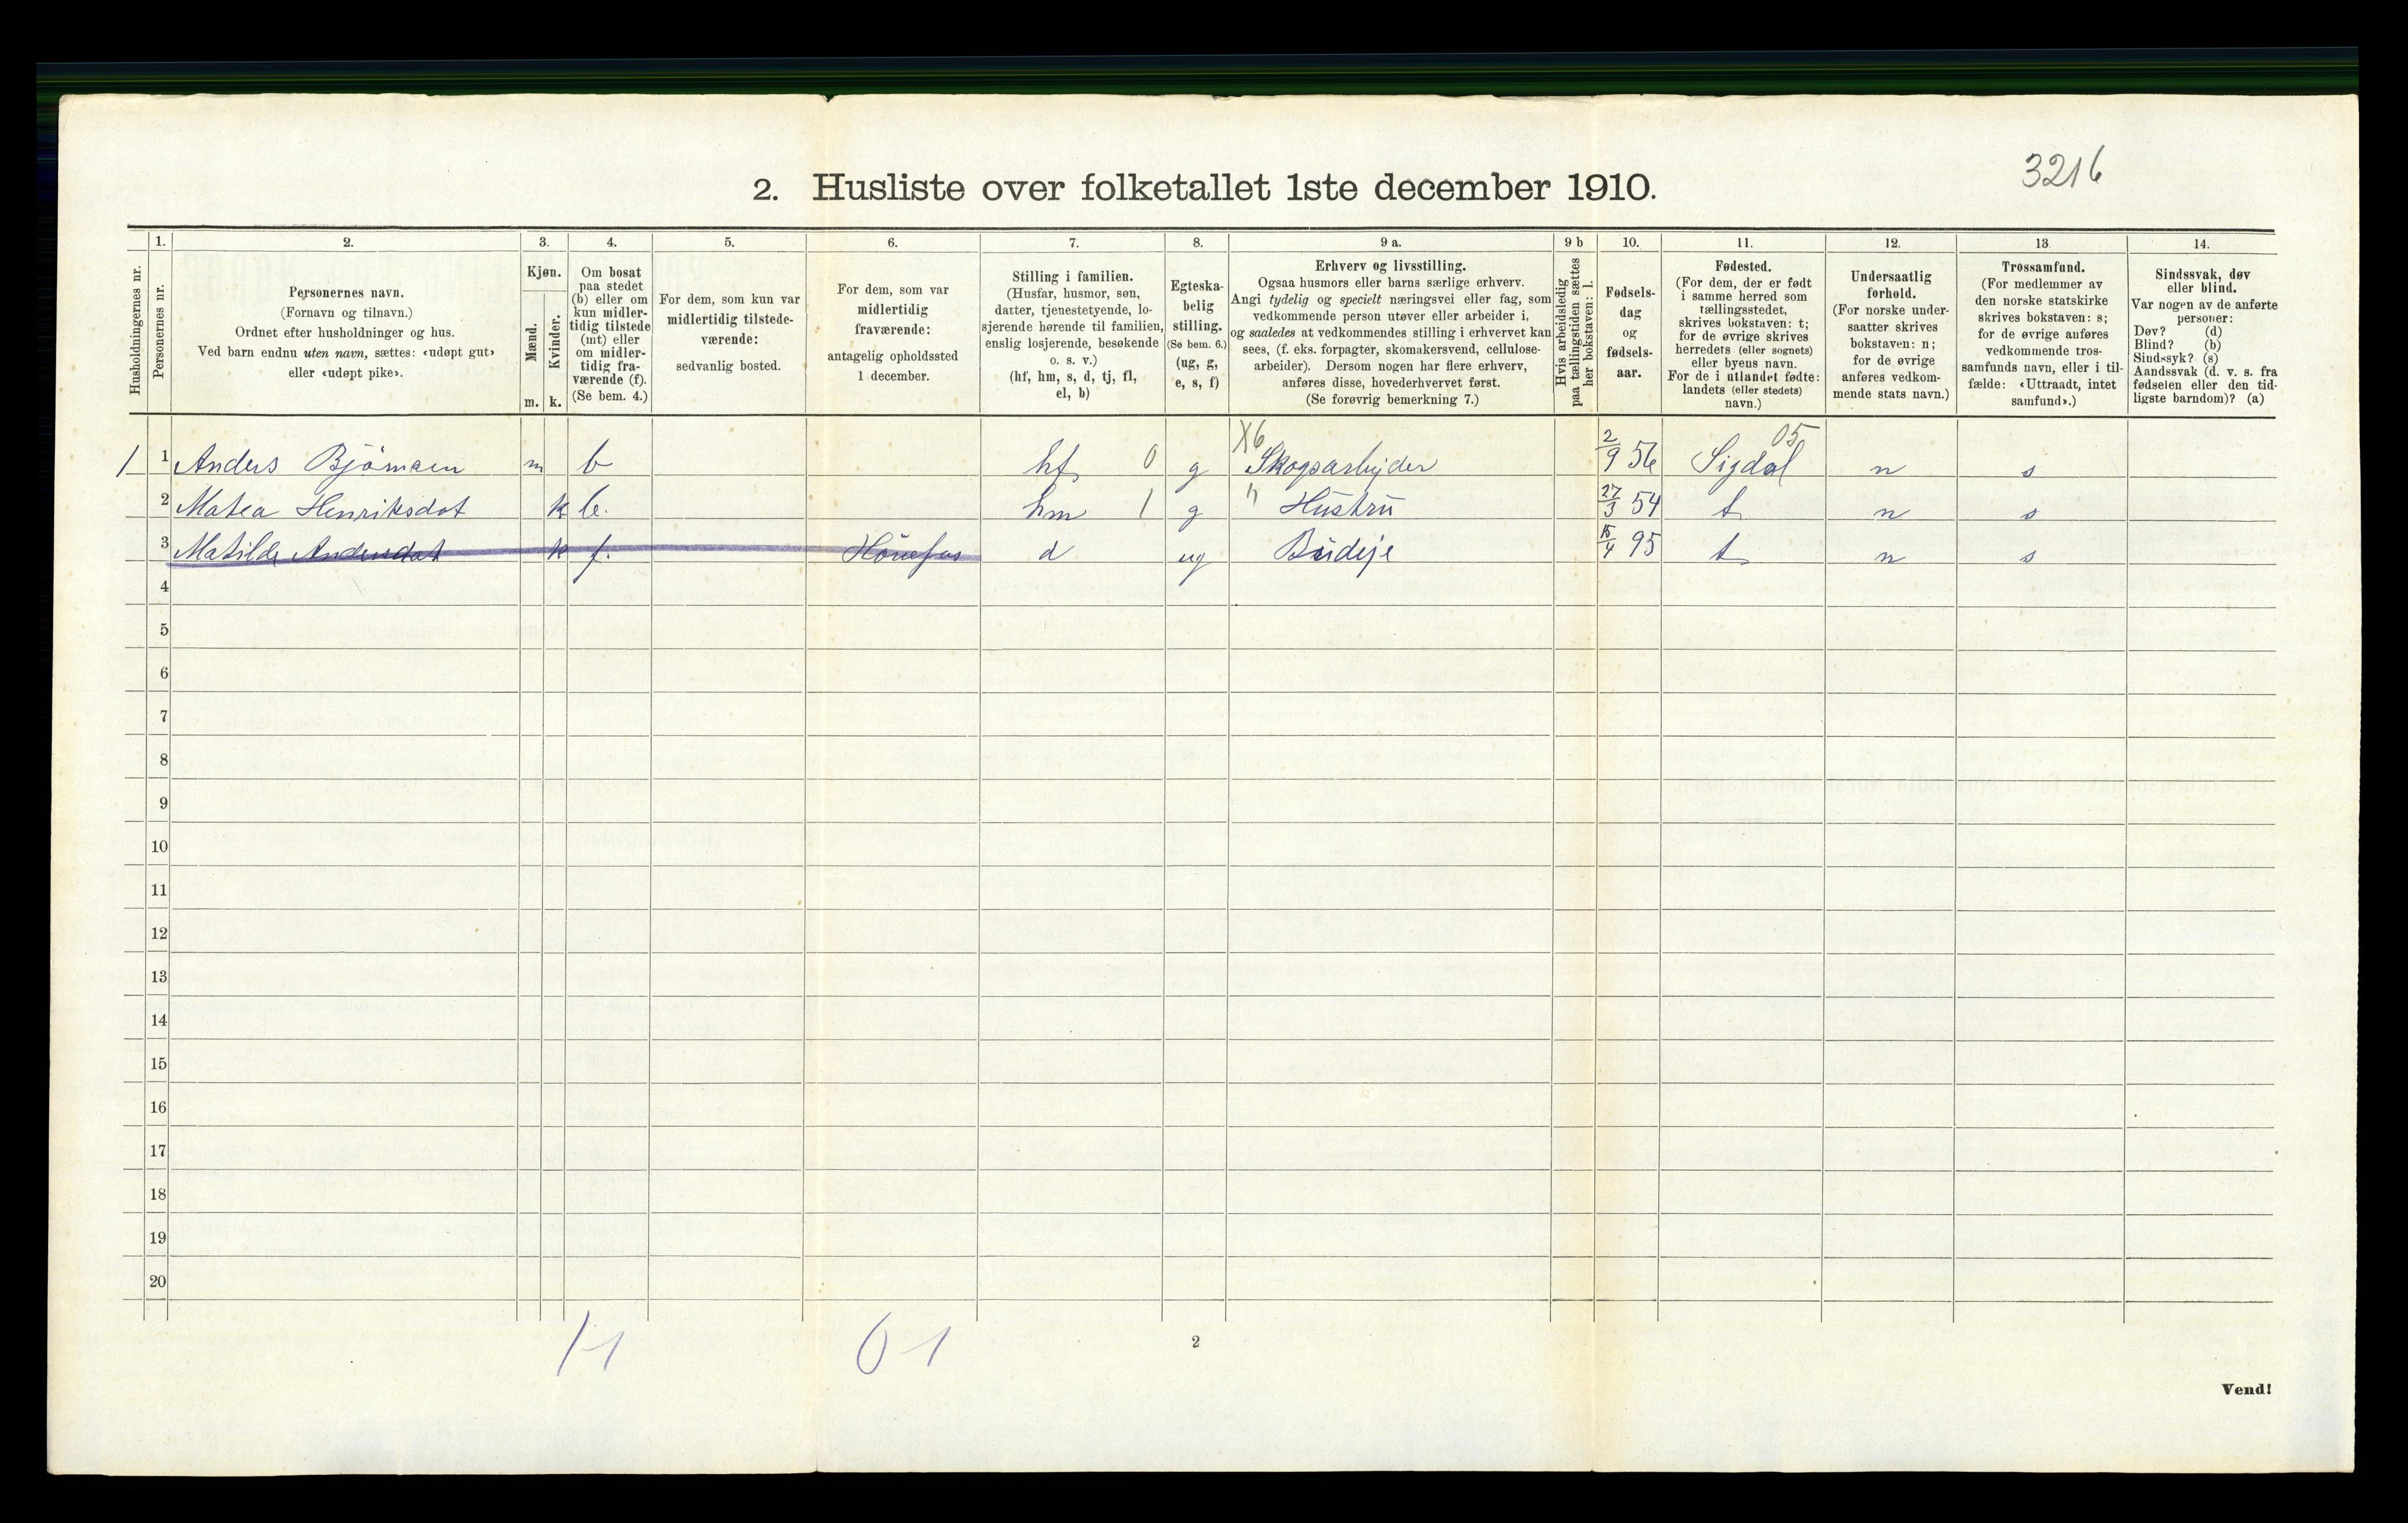 3216
2. Husliste over folketallet 1ste december 1910.
1. 2. 3. 4. 5. 6. 7. 8. 9 a. 9 b 10. 11. 12. 13 14.
Husholdningernes nr.
Personernes nr.
Personernes navn.
(Fornavn og tilnavn.)
Ordnet efter husholdninger og hus.
Ved barn endnu uten navn, sættes: «udøpt gut»
eller «udøpt pike».
Kjøn.
Mænd.
Kvinder.
m. k.
Om bosat
paa stedet
(b) eller om
kun midler-
tidig tilstede
(mt) eller
om midler-
tidig fra-
værende (f).
(Se bem. 4.)
For dem, som kun var
midlertidig tilstede-
værende:
sedvanlig bosted.
For dem, som var
midlertidig
fraværende:
antagelig opholdssted
1 december.
Stilling i familien.
(Husfar, husmor, søn,
datter, tjenestetyende, lo-
sjerende hørende til familien,
enslig losjerende, besøkende
o. s. v.)
(hf, hm, s, d, tj, fl,
el, b)
Egteska-
belig
stilling.
(Se bem. 6.)
(ug, g,
e, s, f)
Erhverv og livsstilling.
Ogsaa husmors eller barns særlige erhverv.
Angi tydelig og specielt næringsvei eller fag, som
vedkommende person utøver eller arbeider i,
og saaledes at vedkommendes stilling i erhvervet kan
sees, (f. eks. forpagter, skomakersvend, cellulose-
arbeider). Dersom nogen har flere erhverv,
anføres disse, hovederhvervet først.
(Se forøvrig bemerkning 7.)
Hvis arbeidsledig
paa tællingstiden sættes
her bokstaven: l.
Fødsels-
dag
og
fødsels-
aar.
Fødested.
(For dem, der er født
i samme herred som
tællingsstedet,
skrives bokstaven: t;
for de øvrige skrives
herredets (eller sognets)
eller byens navn.
For de i utlandet fødte:
landets (eller stedets)
navn.)
Undersaatlig
forhold.
(For norske under-
saatter skrives
bokstaven: n;
for de øvrige
anføres vedkom-
mende stats navn.)
Trossamfund.
(For medlemmer av
den norske statskirke
skrives bokstaven: s;
for de øvrige anføres
vedkommende tros-
samfunds navn, eller i til-
fælde: «Uttraadt, intet
samfund».)
Sindssvak, døv
eller blind.
Var nogen av de anførte
personer:
Døv? (d)
Blind? (b)
Sindssyk? (s)
Aandssvak (d. v. s. fra
fødselen eller den tid-
ligste barndom)? (a)
X6 05
1 1 Anders Björnsen m b hf 0 g Skogsarbejder 2/9 56 Sigdal n s
2 Matea Henriksdot k b. hm 1 g " Hustru 27/3 54 t n s
3 Matilde Andersdat k f. Hönefos d ug Budeje 15/4 95 t n s
4
5
6
7
8
9
10
11
12
13
14
15
16
17
18
19
20
1-1 0 1
2
Vend!